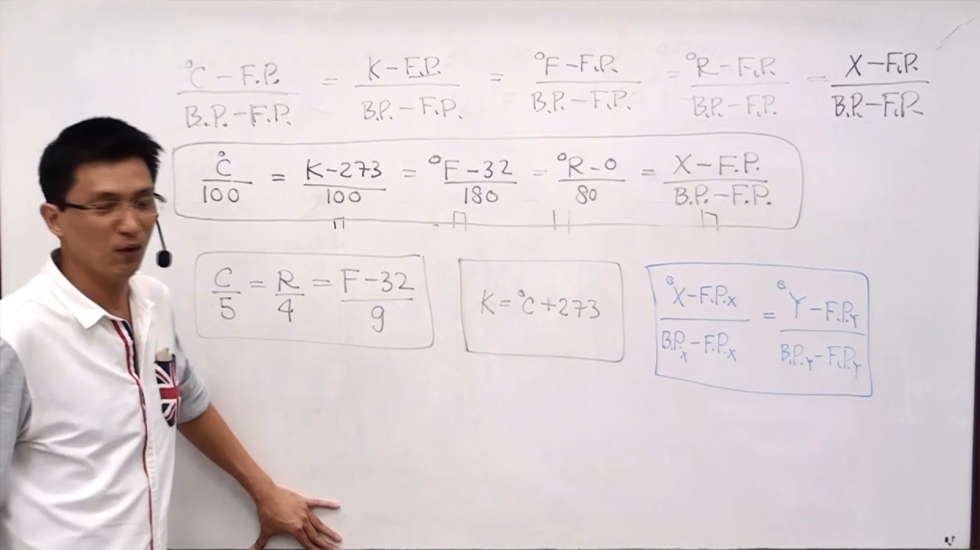 °C-F.P./B.P.-F.P. = K-F.P./B.P.-F.P. = °F-F.P./B.P.-F.P. = °R-F.P./B.P.-F.P. = X-F.P./B.P.-F.P.
°C/100 = K-273/100 = °F-32/180 = °R-0/80 = X-F.P./B.P.-F.P.
C/5 = R/4 = F-32/9
K=°C+273
°X-F.P.X/B.P.X-F.P.X = °Y-F.P.Y/B.P.Y-F.P.Y